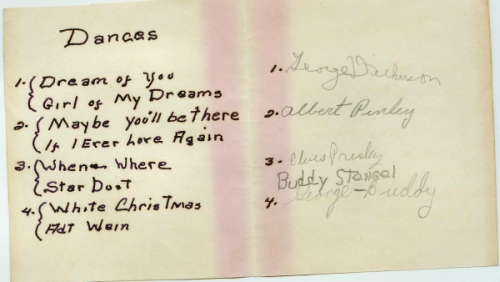 Dances
1. { Dream of You
Girl of My Dreams
2. { Maybe You'll be There
If I Ever Love Again
3. { When Where
Star Dust
4. { White Christmas
Adt Wein
1. George Dickinson
2. Albert Penley
3. Elvis Presley
Buddy Stancel
4. George-Buddy